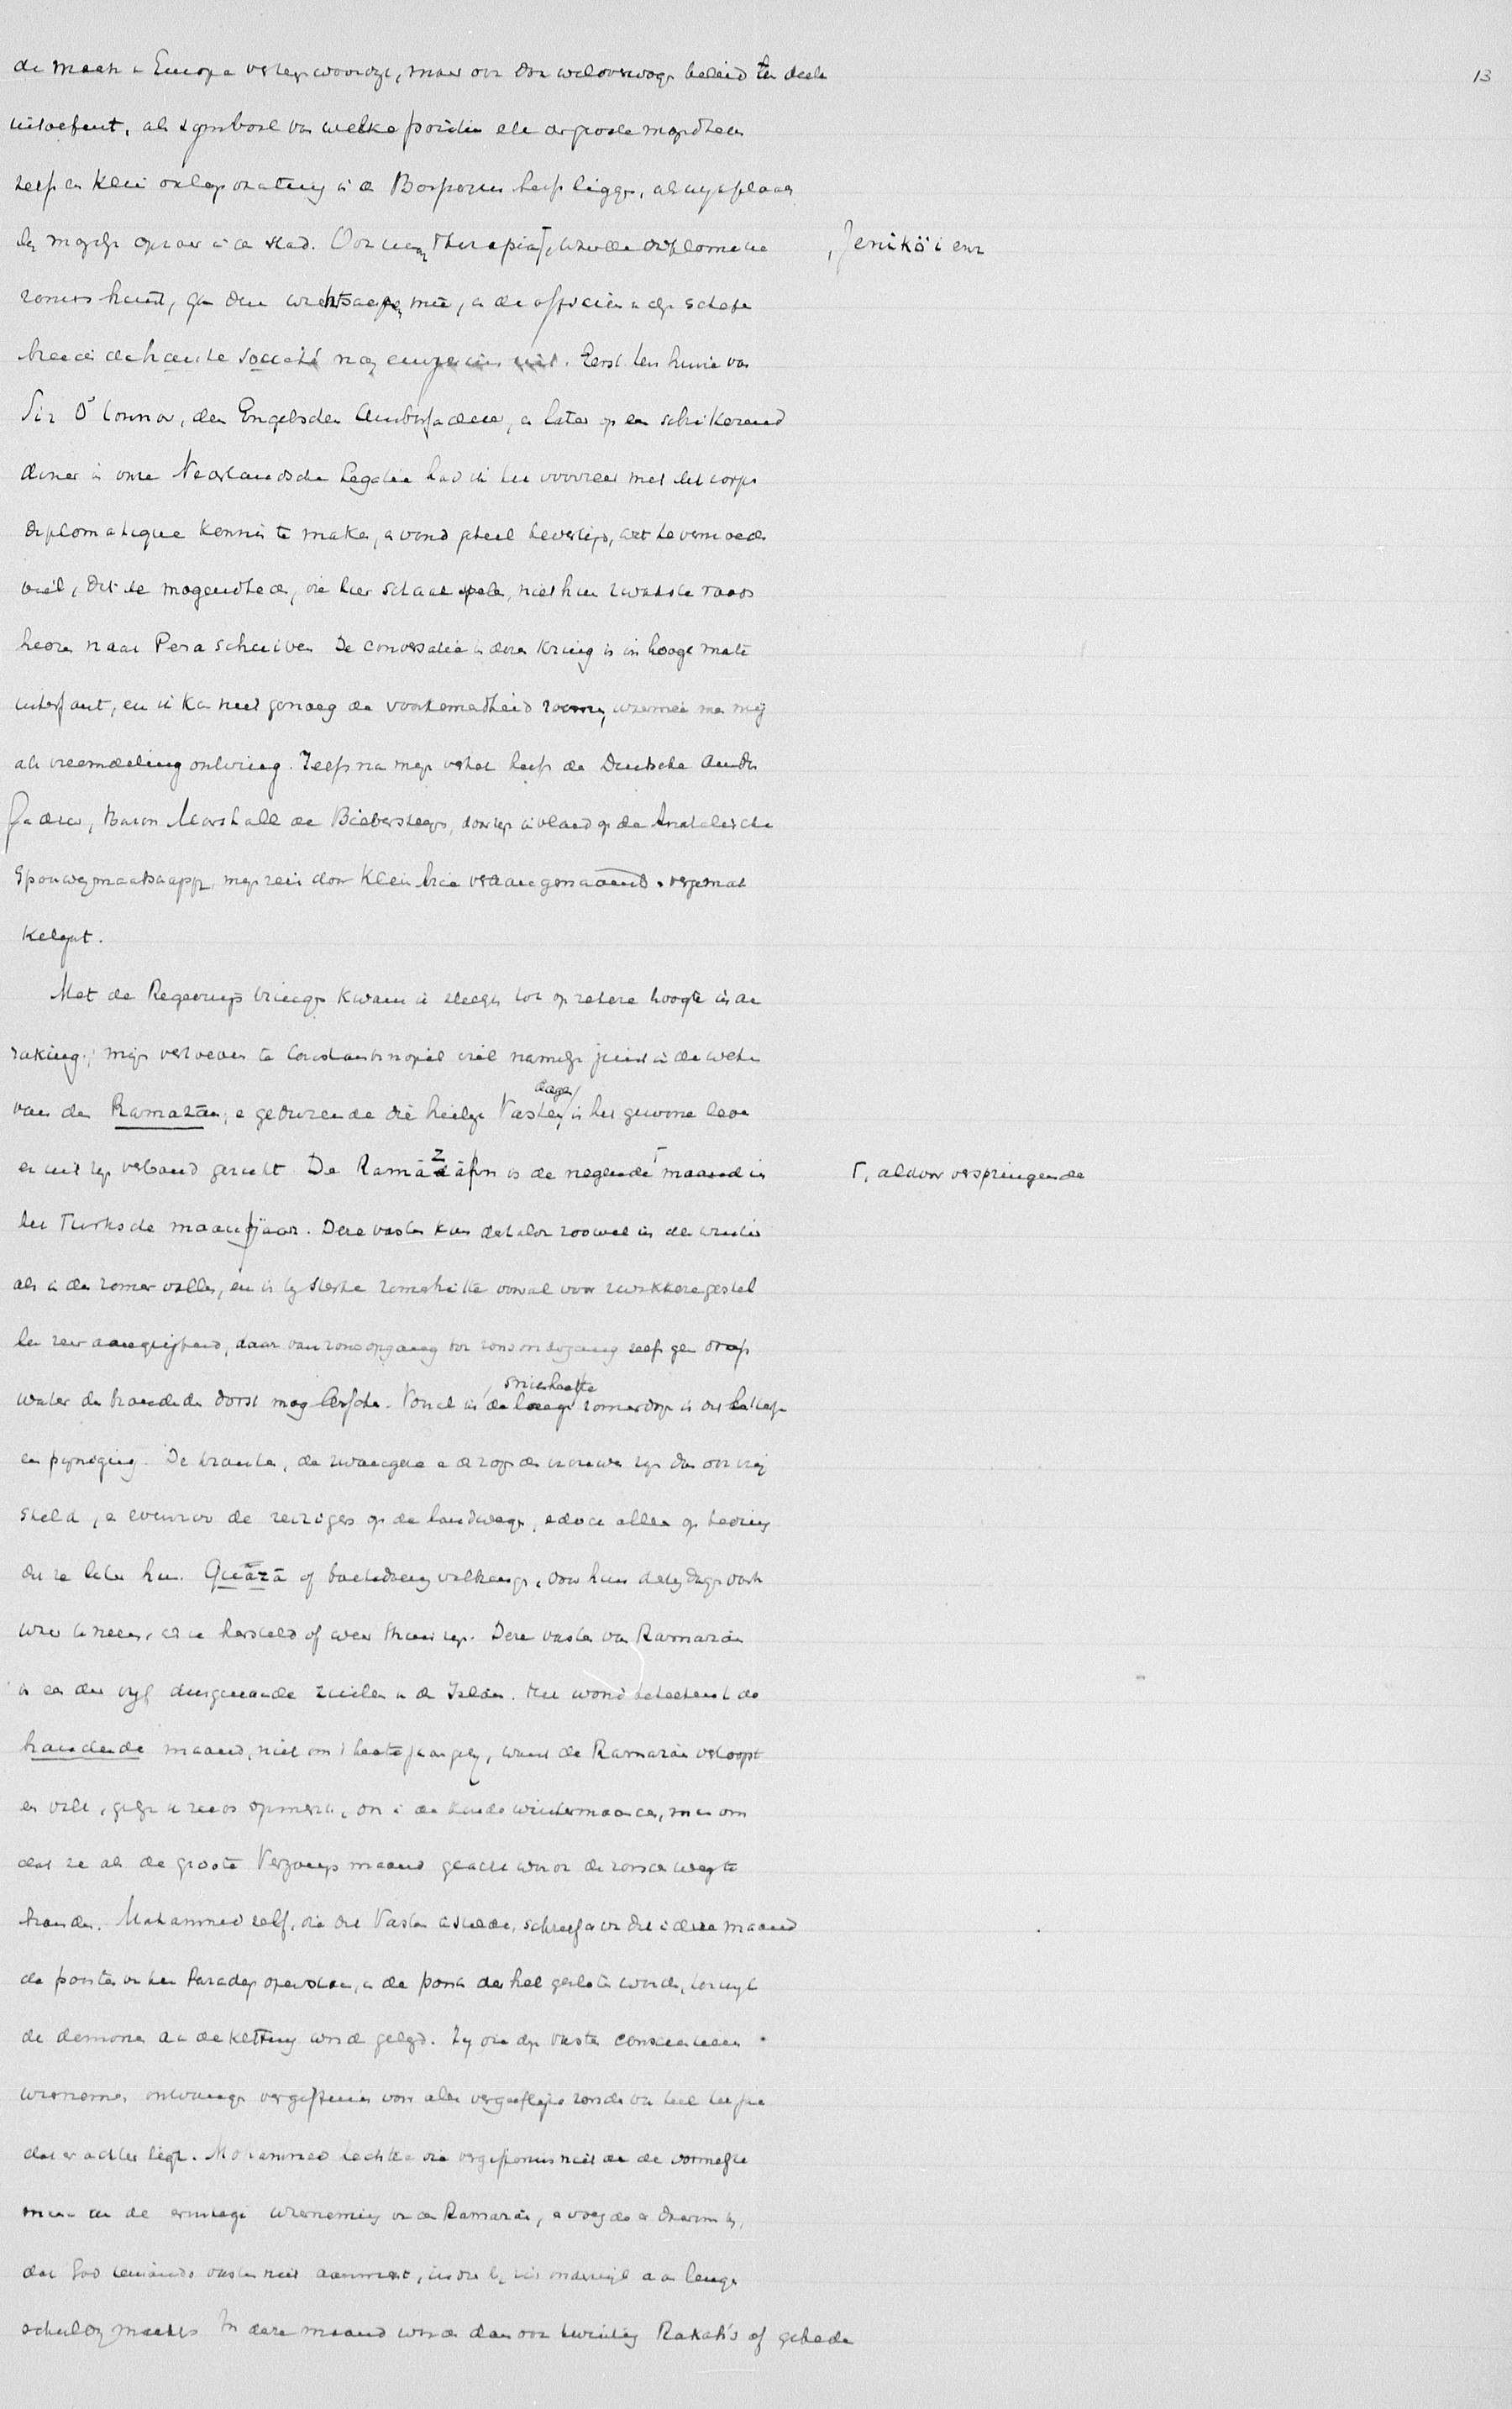 13
de macht in Europa vertegenwoordigt, maar ook door weloverwogen beleid ten deele
uitoefent, als symbool van welke positie elk der groote mogendheden
zelfs een klein oorlogsvaartuig in de Bosporus heeft liggen, als wijkplaats
bij mogelijk oproer in de stad. Ook naar Therapia, Jeniköi enz waar de diplomatie
zomers huist, gaan deze wachtschepen mee, en de officieren dezer schepen
breiden de haute société nog eenigszins uit. Eerst ten huize van
Sir O'Connor, den Engelschen Ambassadeur, en later op een schitterend
diner in onze Nederlandsche Legatie had ik het voorrecht met het corps
diplomatique kennis te maken, en vond geheel bevestigd, wat te vermoeden
viel, dat de mogendheden, die hier schaak spelen, niet hun zwakste raads
heeren naar Pera schuiven. De conversatie in dezen kring is in hooge mate
interessant, en ik kan niet genoeg de voorkomendheid roemen, waarmee men mij
als vreemdeling ontving. Zelfs na mijn vertrek heeft de Duitsche Ambas
sadeur, Baron Marshall de Bieberstein, door zijn invloed op de Anatolische
Spoorwegmaatschappij, mijn reis door Klein Azië veraangenaamd en vergemak
kelijkt.
Met de Regeeringskringen kwam ik slechts tot op zekere hoogte in aan
raking; mijn vertoeven te Constantinopel viel namelijk juist in de weken
van den Ramazân, en gedurende die heilige Vastendagen is het gewone leven
er uit zijn verband gerukt. De Ramâzân is de negende, aldoor verspringende maand in
het Turksche maanjaar. Deze vasten kan dus zoowel in de winter
als in den zomer vallen, en is bij sterke zomerhitte vooral voor zwakkere gestel
len zeer aangrijpend, daar van zonsopgang tot zonsondergang zelfs geen drop
water den brandenden dorst mag lesschen. Vooral in de snikheete zomerdagen is dit letterlijk
een pijniging. De kranken, de zwangere en de zoogende vrouwen zijn dan ook vrij
gesteld, en evenzoo de reizigers op de landwegen, edoch alleen op beding
dat ze later hun Quâzâ of boetedoening volbrengen, door hun dertig dagen vasten
waar te nemen, als ze hersteld of weer thuis zijn. Deze vasten van Ramazân
is een der vijf dusgenaamde zuilen van den Islâm. Het woord beteekent de
brandende maand, niet om 't heete jaargetij, want de Ramazân verloopt
en valt, gelijk ik reeds opmerkte, ook in de koude wintermaanden, maar om
dat ze als de groote Verzoenings maand geacht wordt de zonden weg te
branden. Mohammed zelf, die dit Vasten instelde, schreef er van dat in deze maand
de poorten van het Paradijs openstaan, en de poort der hel gesloten wordt, terwijl
de demonen aan de ketting worden gelegd. Zij die dezen vasten consciëntieus
waarnemen ontvangen vergiffenis voor alle vergeeflijke zonden van heel het jaar
dat er achter ligt. Mohammed hechtte die vergiffenis niet aan de vormelijke
maar aan de ernstige waarneming van den Ramazân, en voegde er daarom bij,
dat God iemands vasten niet aanmerkt, indien hij zich onderwijl aan leugen
schuldig maakt. In deze maand worden dan ook twintig Rakah's of gebeden